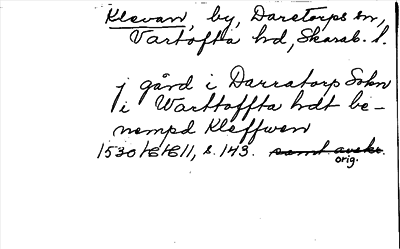 Klevan, by, Daretorps sn,
Vartofta hd, Skarab. l.
j gård i Darratorp Sokn
i Warttoffta hdt be-
nempd Kleffwen
1530 HH 11, s. 143. samt avskr.
orig.